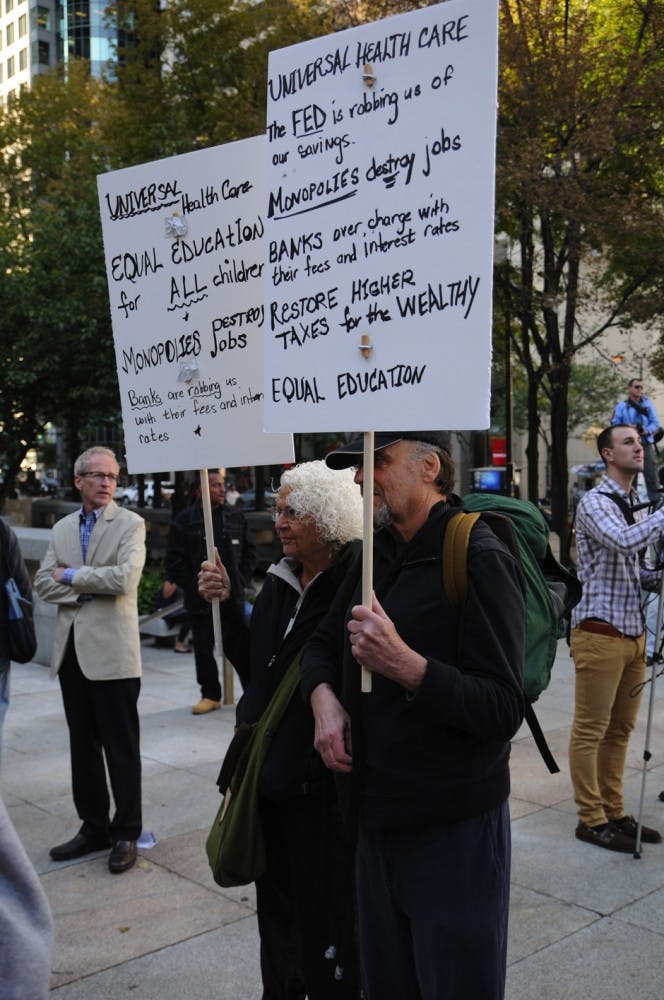 UNIVERSAL Health Care
EQUAL EDUCATION
for ALL children
MONOPOLIES DESTROY
jobs
Banks are robbing us
with their fees and
rates
UNIVERSAL HEALTH CARE
The FED is robbing us of
our savings.
MONOPOLIES destroy jobs
BANKS over charge with
their fees and interest rates
RESTORE HIGHER
TAXES for the WEALTHY
EQUAL EDUCATION